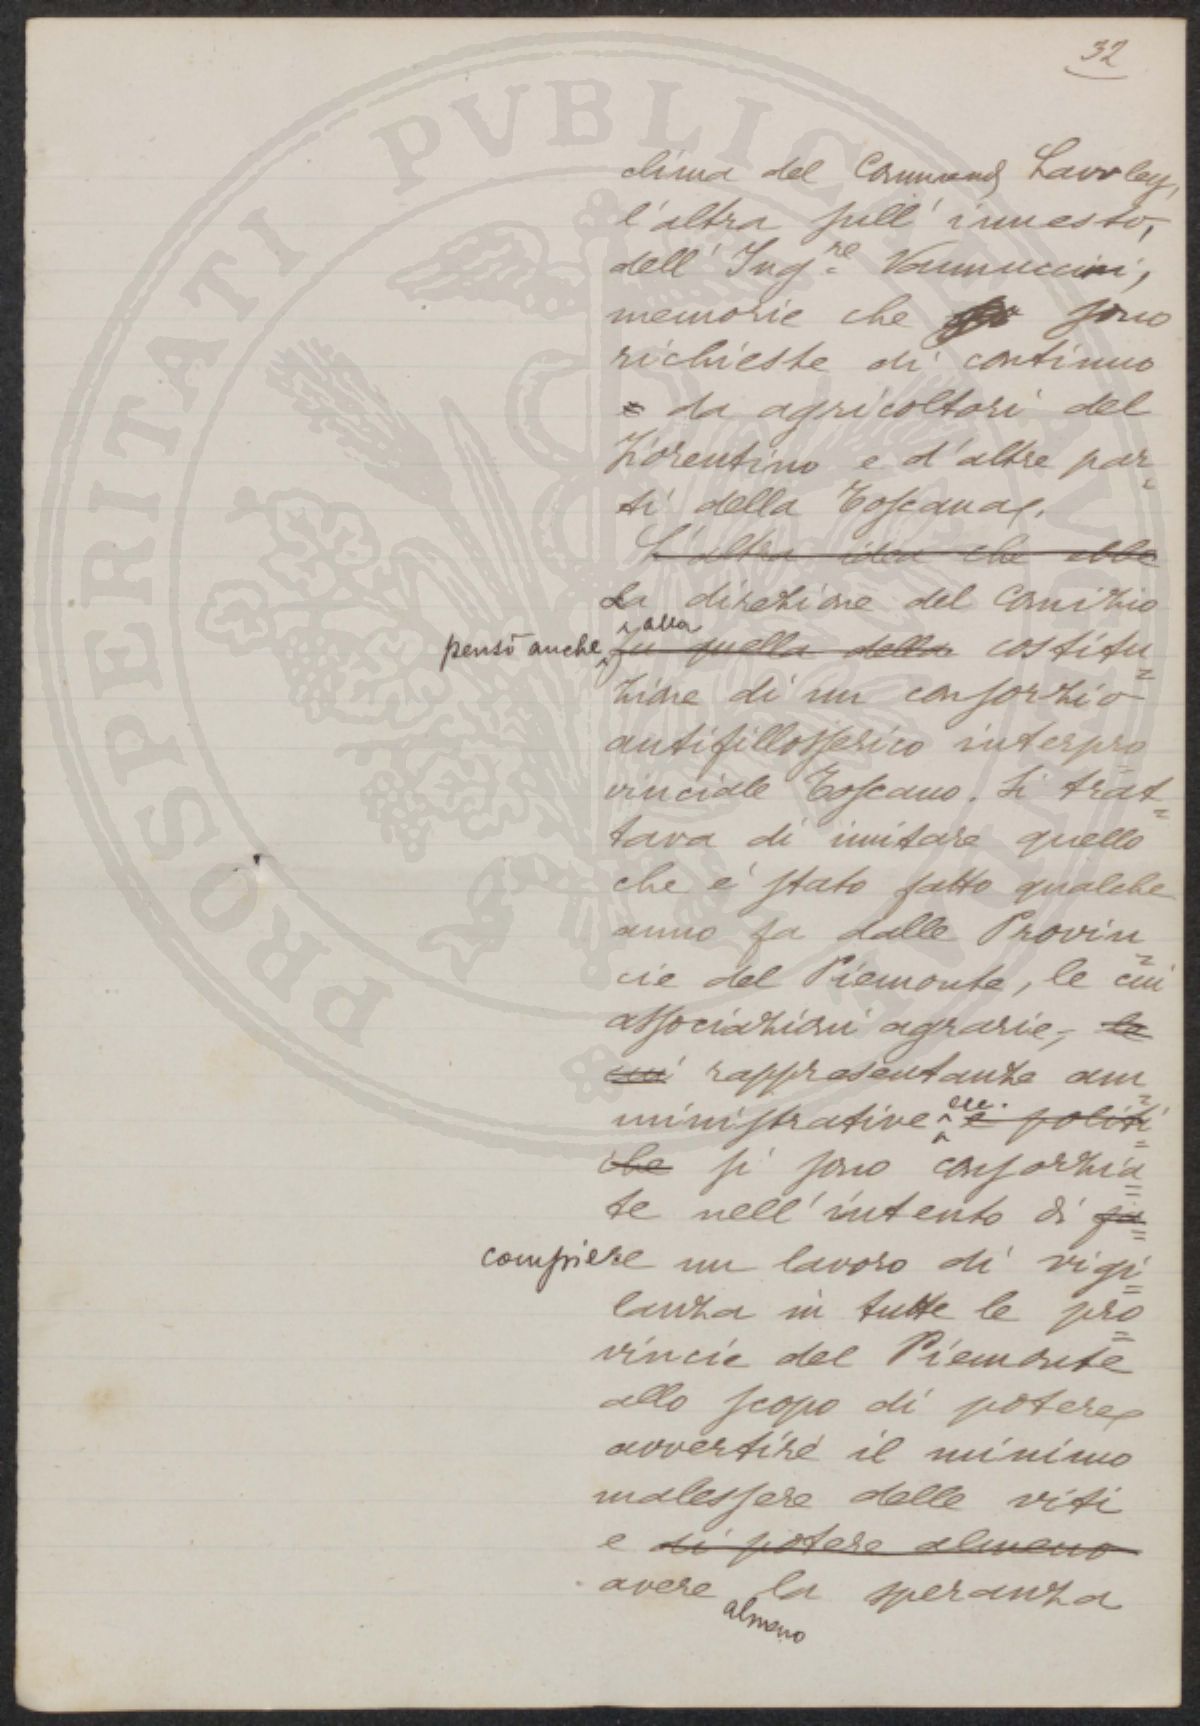 32
clima del Command Lawley,
l'altra sull' innesto,
dell' Ing.re Vannuccini,
memorie che sono
richieste di continuo
da agricoltori del
Fiorentino e d'altre par=
ti della Toscana.
L'altra idea che ebbe
La direzione del Comizio
pensò anche alla
fu quella della costitu=
zione di un consorzio
antifillosserico interpro
vinciale Toscano. Si trat=
tava di imitare quello
che è stato fatto qualche
anno fa dalle Provin=
cie del Piemonte, le cui
associazioni agrarie, le
cui rappresentanze am=
ministrative ecc. e politi=
che si sono consorzia=
te nell'intento di fa=
compiere un lavoro di vigi=
lanza in tutte le pro=
vincie del Piemonte
allo scopo di potere
avvertire il minimo
malessere delle viti
e di potere almeno
avere la speranza
almeno
PROSPERITATI PUBLICAE AUGENDAE